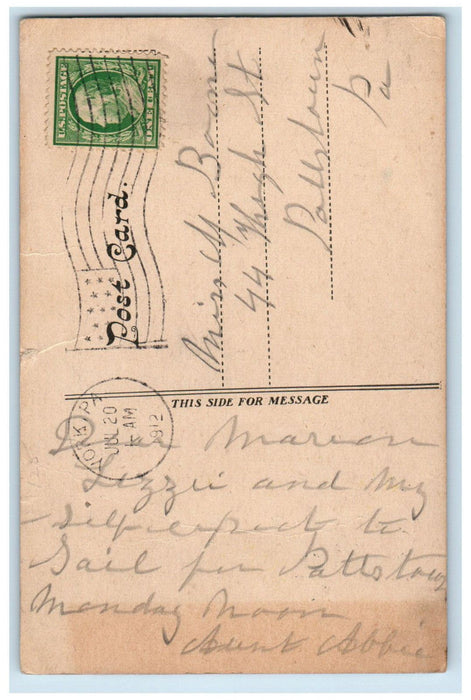 U.S. POSTAGE
Post Card.
Miss M Boone
44 High St
Pottstown
Pa
YORK, PA
JUL 20
AM
1912
THIS SIDE FOR MESSAGE
Dear Marion
Lizzie and My
self expect to
Sail for Pottstown
Monday Noon
Aunt Abbie